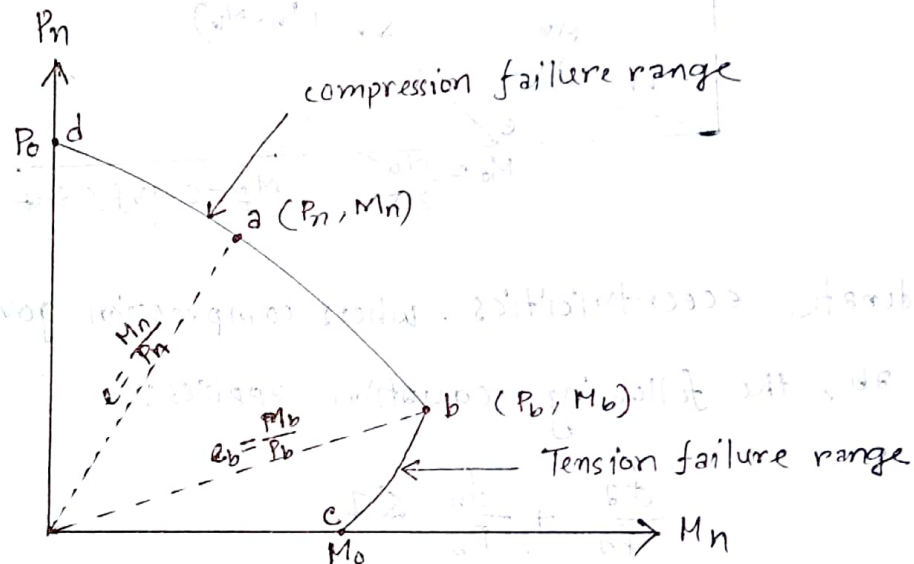 Pn
compression failure range
Po d
a (Pn, Mn)
e = Mn/Pn
b (Pb, Mb)
eb = Mb/Pb
Tension failure range
c
Mo
Mn